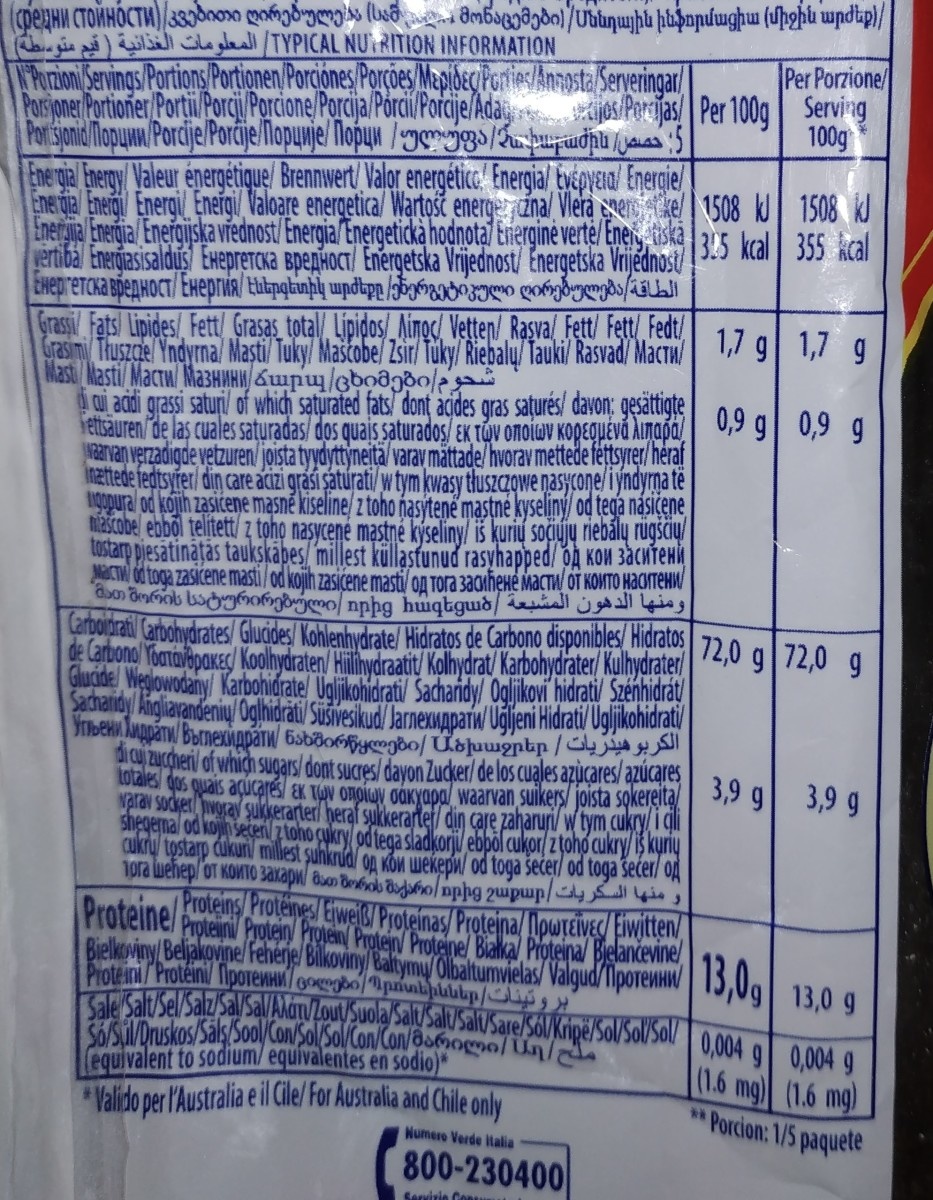 (средни стойности)/კვებითი ღირებულება მონაცემები)/Սննդային ինֆորմացիա (միջին արժեք)/
المعلومات الغذائية ( قيم متوسطة) /TYPICAL NUTRITION INFORMATION
N°Porzioni/Servings/Portions/Portionen/Porciones/Porções/Μερίδες/Porties/Annosta/Serveringar/
Porsjoner/Portioner/Porții/Porcji/Porcione/Porcija/Porcií/Porcije/Adag
Portsjonid/Порции/Porcije/Porcije/Порције/ Порци /ულუფა/Չափաբաժին /حصص :5
Per 100g
Per Porzione/
Serving
100g**
Energia/ Energy/ Valeur énergétique/ Brennwert/ Valor energético/ Energia/ Ενέργεια/ Energie/
Energia/ Energi/ Energi/ Energi/ Valoare energetica/ Wartość energetyczna/ Vlera energjetike/
Energija/ Energia/ Energijska vrednost/ Energia/ Energetická hodnota/ Energinė vertė/ Enerģētiskā
vērtība/ Energiasisaldus/ Енергетска вредност/ Energetska Vrijednost/ Energetska Vrijednost/
Енергетска вредност/ Енергия/ Էներգետիկ արժեքը/ენერგეტიკული ღირებულება/الطاقة
1508 kJ 1508 kJ
355 kcal 355 kcal
Grassi/ Fats/ Lipides/ Fett/ Grasas total/ Lípidos/ Λίπος/ Vetten/ Rasva/ Fett/ Fett/ Fedt/
Grasimi/ Tłuszcze/ Yndyrna/ Masti/ Tuky/ Maščobe/ Zsír/ Tuky/ Riebalų/ Tauki/ Rasvad/ Масти/
Masti/ Masti/ Масти/ Мазнини/ Ճարպ/ცხიმები/شحوم
1,7 g 1,7 g
di cui acidi grassi saturi/ of which saturated fats/ dont acides gras saturés/ davon: gesättigte
Fettsäuren/ de las cuales saturadas/ dos quais saturados/ εκ των οποίων κορεσμένα λιπαρά/
waarvan verzadigde vetzuren/ joista tyydyttyneitä/ varav mättade/ hvorav mettede fettsyrer/ heraf
mættede fedtsyrer/ din care acizi grași saturati/ w tym kwasy tłuszczowe nasycone/ i yndyrna të
ngopura/ od kojih zasićene masne kiseline/ z toho nasytené mastné kyseliny/ od tega nasičene
maščobe/ ebből telített/ z toho nasycené mastné kyseliny/ iš kurių sočiųjų riebalų rūgščių/
tostarp piesātinātās taukskābes/ millest küllastunud rasvhapped/ од кои заситени
масти/ od toga zasićene masti/ od kojih zasićene masti/ од тога засићене масти/ от които наситени/
მათ შორის სატურირებული/ որից հագեցած/ ومنها الدهون المشبعة
0,9 g 0,9 g
Carboidrati/ Carbohydrates/ Glucides/ Kohlenhydrate/ Hidratos de Carbono disponibles/ Hidratos
de Carbono/ Υδατάνθρακες/ Koolhydraten/ Hiilihydraatit/ Kolhydrat/ Karbohydrater/ Kulhydrater/
Glucide/ Węglowodany/ Karbohidrate/ Ugljikohidrati/ Sacharidy/ Ogljikovi hidrati/ Szénhidrát/
Sacharidy/ Angliavandenių/ Ogļhidrāti/ Süsivesikud/ Јагленхидрати/ Ugljeni Hidrati/ Ugljikohidrati/
Угљени Хидрати/ Въглехидрати/ ნახშირწყლები/ Ածխաջրեր/ الكربوهيدريات
72,0 g 72,0 g
di cui zuccheri/ of which sugars/ dont sucres/ davon Zucker/ de los cuales azúcares/ azúcares
totales/ dos quais açúcares/ εκ των οποίων σάκχαρα/ waarvan suikers/ joista sokereita/
varav socker/ hvorav sukkerarter/ heraf sukkerarter/ din care zaharuri/ w tym cukry/ i cili
shegerna/ od kojih šećeri/ z toho cukry/ od tega sladkorji/ ebből cukor/ z toho cukry/ iš kurių
cukrų/ tostarp cukuri/ millest suhkrud/ од кои шеќери/ od toga šećer/ od toga šećer/ од
тога шећер/ от които захари/ მათ შორის შაქარი/ որից շաքար/ و منها السكريات
3,9 g 3,9 g
Proteine/ Proteins/ Protéines/ Eiweiß/ Proteinas/ Proteina/ Πρωτεΐνες/ Eiwitten/
Proteiini/ Protein/ Protein/ Protein/ Proteine/ Białka/ Proteina/ Bjelančevine/
Bielkoviny/ Beljakovine/ Fehérje/ Bílkoviny/ Baltymų/ Olbaltumvielas/ Valgud/ Протеини/
Proteini/ Proteini/ Протеини/ ცილები/ Պրոտեիններ/ بروتينات
13,0g 13,0 g
Sale/Salt/Sel/Salz/Sal/Sal/Αλάτι/Zout/Suola/Salt/Salt/Salt/Sare/Sól/Kripë/Sol/Soľ/Sol/
Só/Sůl/Druskos/Sāls/Sool/Сол/Sol/Sol/Сол/Сол/მარილი/ Աղ/ملح
(equivalent to sodium/ equivalentes en sodio)*
0,004 g 0,004 g
(1.6 mg) (1.6 mg)
* Valido per l'Australia e il Cile/ For Australia and Chile only
** Porcion: 1/5 paquete
Numero Verde Italia
800-230400
Servizio